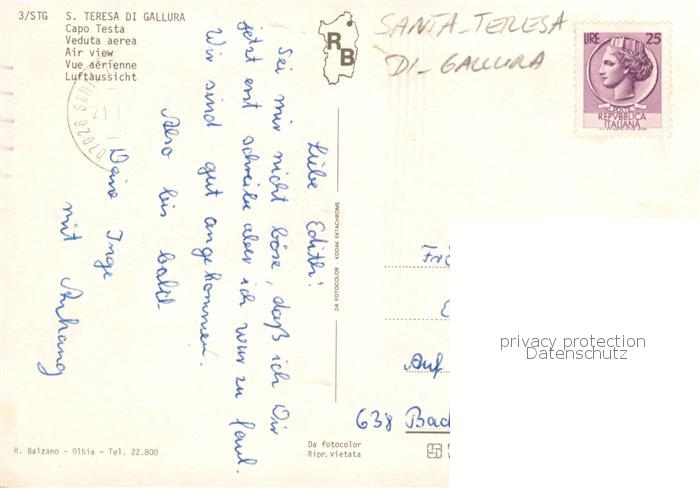 3/STG S. TERESA DI GALLURA
Capo Testa
Veduta aerea
Air view
Vue aérienne
Luftaussicht
RB
SANTA-TERESA
DI-GALLURA
LIRE 25
POSTE
REPVBBLICA
ITALIANA
07028 SAN
21.1
Liebe Edith!
Sei mir nicht böse, daß ich Dir
jetzt erst schreibe aber ich war zu faul.
Wir sind gut angekommen.
Also bis bald
Deine Inge
mit Anhang
DA FOTOCOLOR - KODAK EKTACHROME
Auf
638 Bad
privacy protection
Datenschutz
R. Balzano - Olbia - Tel. 22.800
Da fotocolor
Ripr. vietata